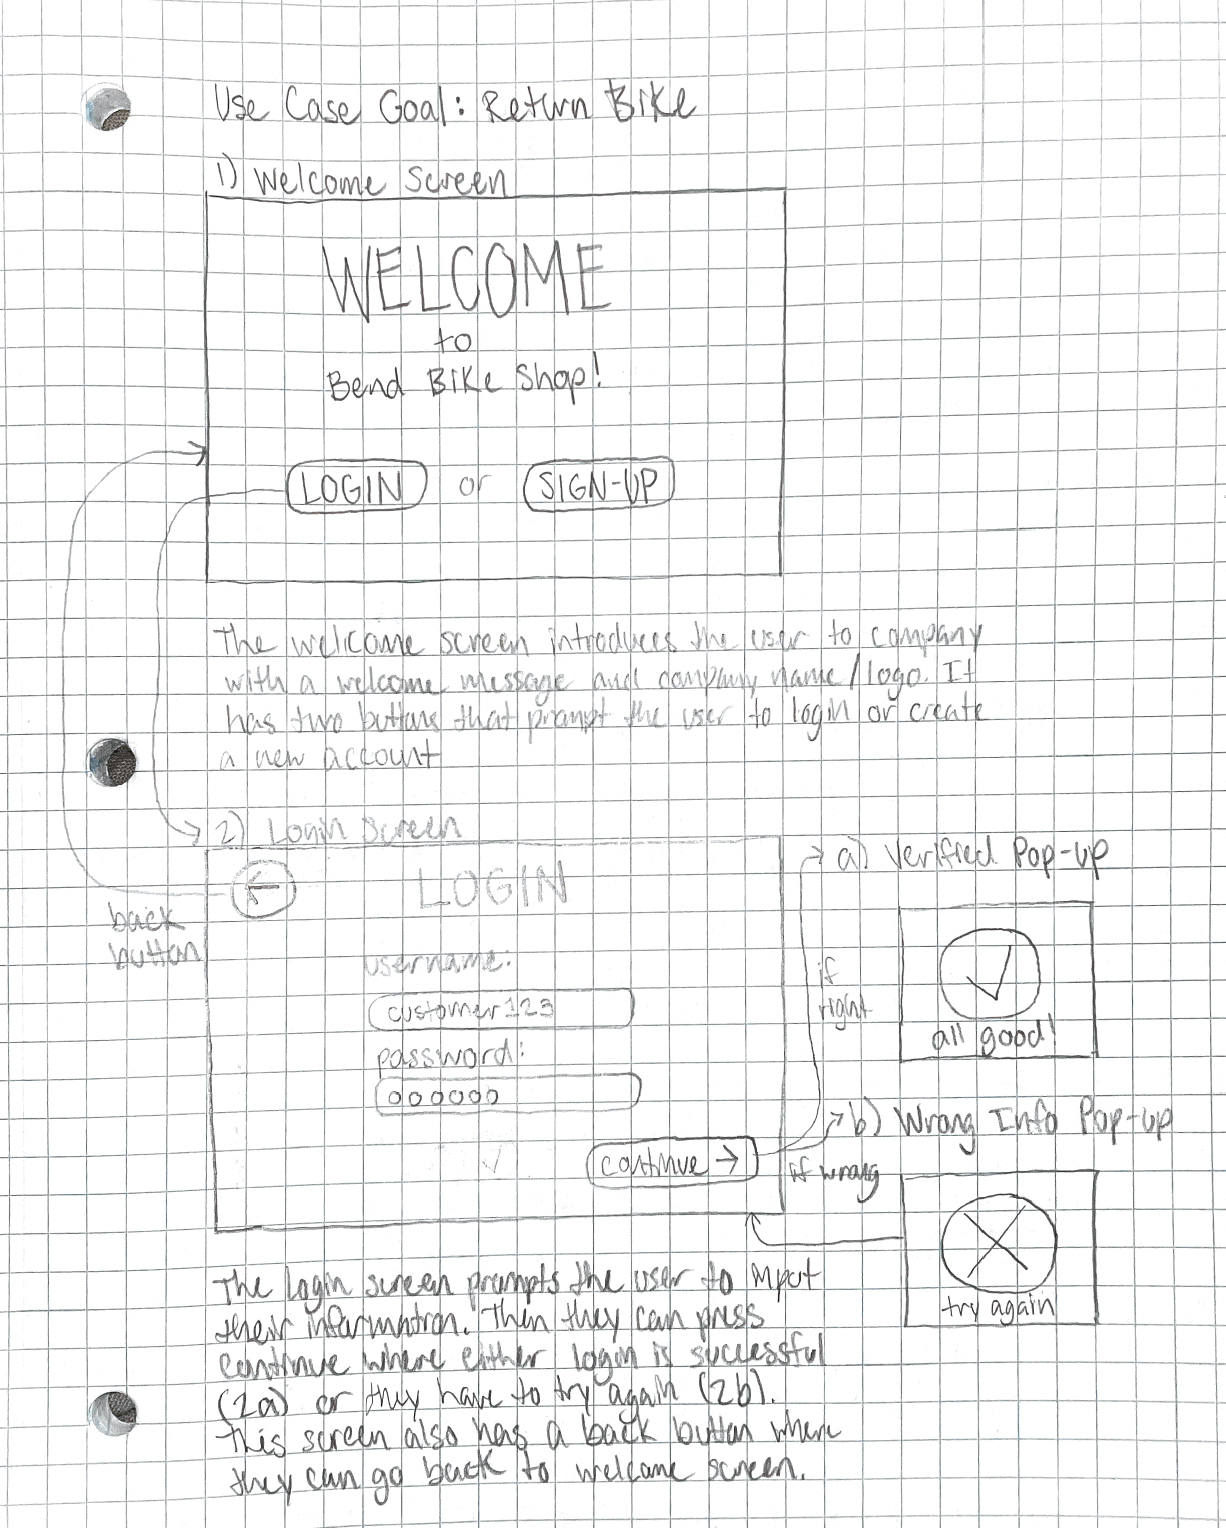 Use Case Goal: Return Bike
1) Welcome Screen
WELCOME
to
Bend Bike Shop!
LOGIN or SIGN-UP
The welcome screen introduces the user to company
with a welcome message and company name/logo. It
has two buttons that prompt the user to login or create
a new account
2) Login Screen
←
LOGIN
back
button
username:
customer123
password:
oooooo
continue →
a) Verified Pop-up
if
right
all good!
b) Wrong Info Pop-up
if wrong
try again
The login screen prompts the user to input
their information. Then they can press
continue where either login is successful
(2a) or they have to try again (2b).
This screen also has a back button where
they can go back to welcome screen.